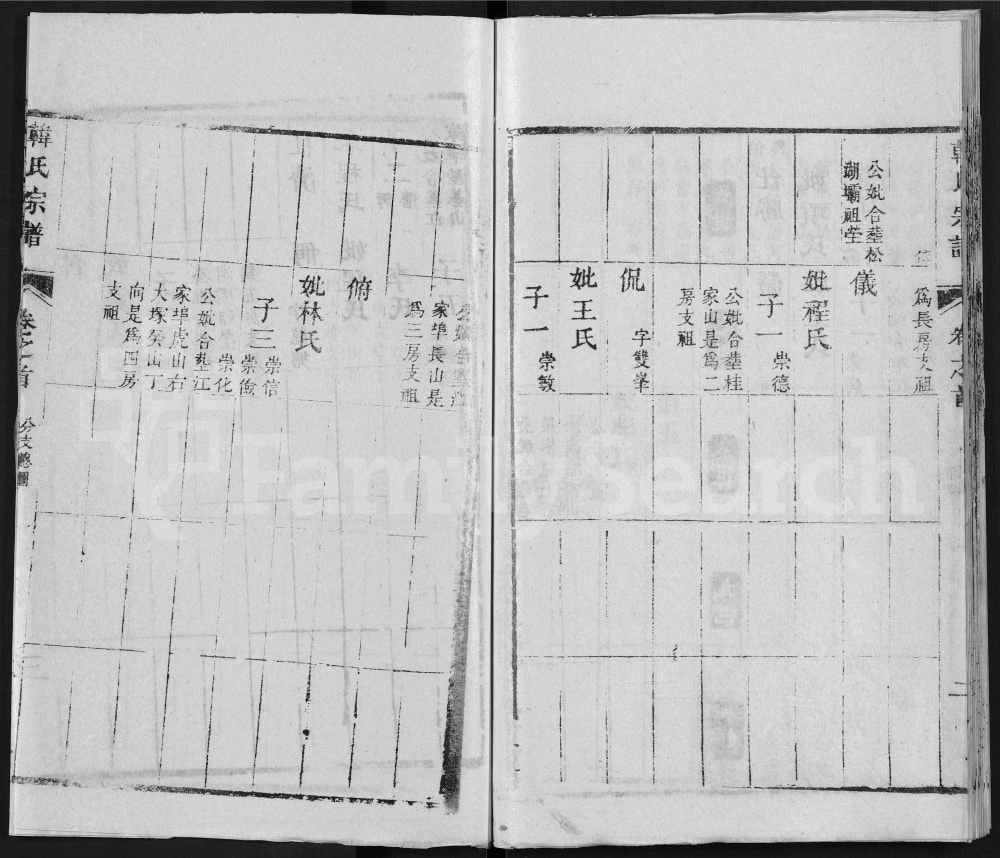 韓氏宗譜
卷之首
二
為長房支祖
公妣合塟松
湖壩祖塋
儀
妣程氏
子一
崇德
公妣合塟桂
家山是為二
房支祖
侃
字雙峯
妣王氏
子一
崇敎
家埠長山是
為三房支祖
俯
妣林氏
子三
崇信
崇化
崇儉
公妣合塟江
家埠虎山右
大塚癸山丁
向是為四房
支祖
韓氏宗譜
卷之首
分支總圖
FamilySearch